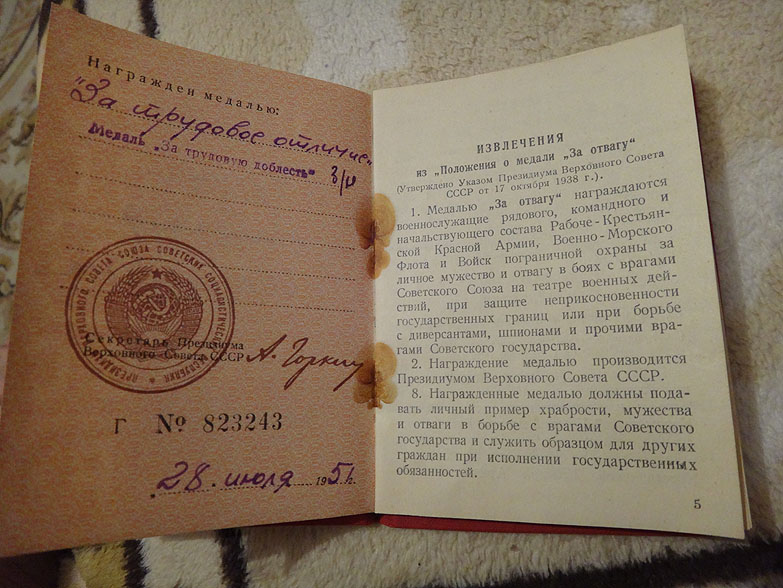 Награжден медалью:
"За трудовое отличие"
Медаль „За трудовую доблесть"
Секретарь Президиума
Верховного Совета СССР А. Горкин
Г № 823243
28. июля 1951 г.
ИЗВЛЕЧЕНИЯ
из „Положения о медали „За отвагу"
(Утверждено Указом Президиума Верховного Совета
СССР от 17 октября 1938 г.).
1. Медалью „За отвагу" награждаются
военнослужащие рядового, командного и
начальствующего состава Рабоче-Крестьян-
ской Красной Армии, Военно-Морского
Флота и Войск пограничной охраны за
личное мужество и отвагу в боях с врагами
Советского Союза на театре военных дей-
ствий, при защите неприкосновенности
государственных границ или при борьбе
с диверсантами, шпионами и прочими вра-
гами Советского государства.
2. Награждение медалью производится
Президиумом Верховного Совета СССР.
8. Награжденные медалью должны пода-
вать личный пример храбрости, мужества
и отваги в борьбе с врагами Советского
государства и служить образцом для других
граждан при исполнении государственных
обязанностей.
5